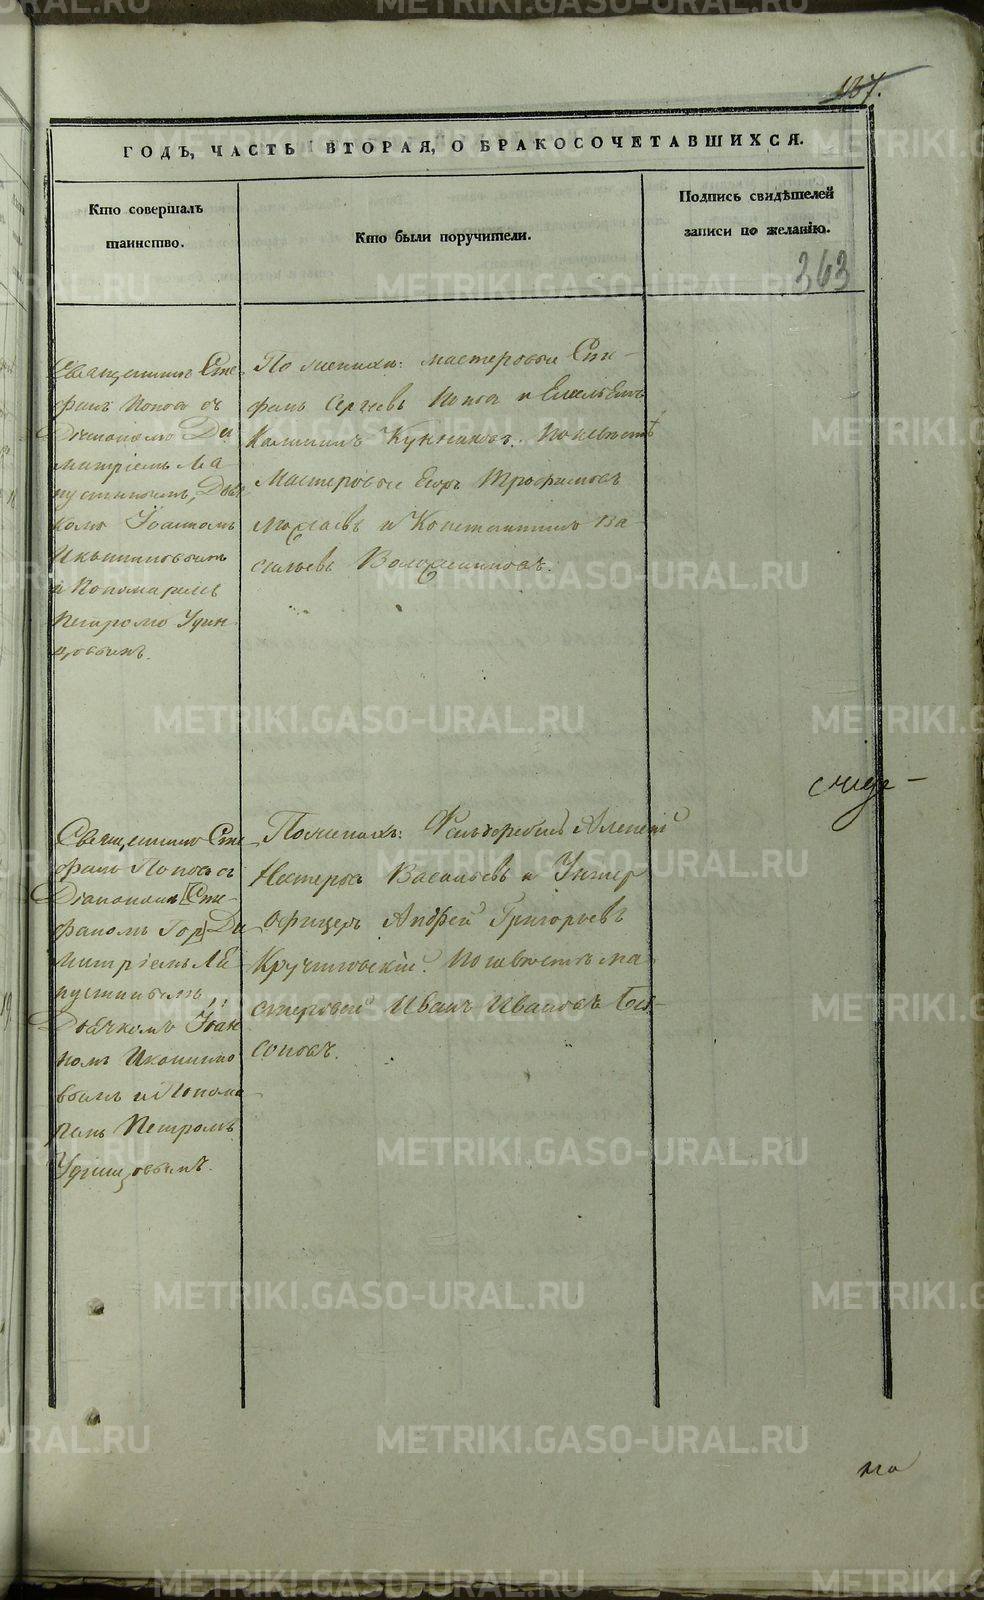 187.
ГОДЪ, ЧАСТЬ ВТОРАЯ, О БРАКОСОЧЕТАВШИХСЯ.
Кто совершалъ
таинство.
Кто были поручители.
Подпись свидѣтелей
записи по желанію.
363
Священникъ Сте-
фанъ Попов съ
Діакономъ Ди
митріемъ Ла
пустинымъ, Дья
комъ Іоанномъ
Иконниковымъ
и Пономаремъ
Петромъ Удин
цовымъ.
По женихѣ: мастеровые Сте-
фанъ Сергѣевъ Попов и
Калининъ Кунгаков. По невѣстѣ
Мастеровые Егоръ Трофимовъ
и Константинъ Ва-
сильевъ
Священникъ Сте
фанъ Поповъ съ
Діакономъ [Сте-
фаномъ Гор] Ди
митріемъ Ла
пустинымъ,
Дьячкомъ Іоан
номъ Иконнико
вымъ и Понома
ремъ Петромъ
Удинцовымъ.
По женихѣ: Фельдфебель Алексей
Нестеров Васильевъ и Унтер
офицеръ Андрей Григорьевъ
Кручковскій. По невѣстѣ ма-
стеровой Иванъ Ивановъ
METRIKI.GASO-URAL.RU